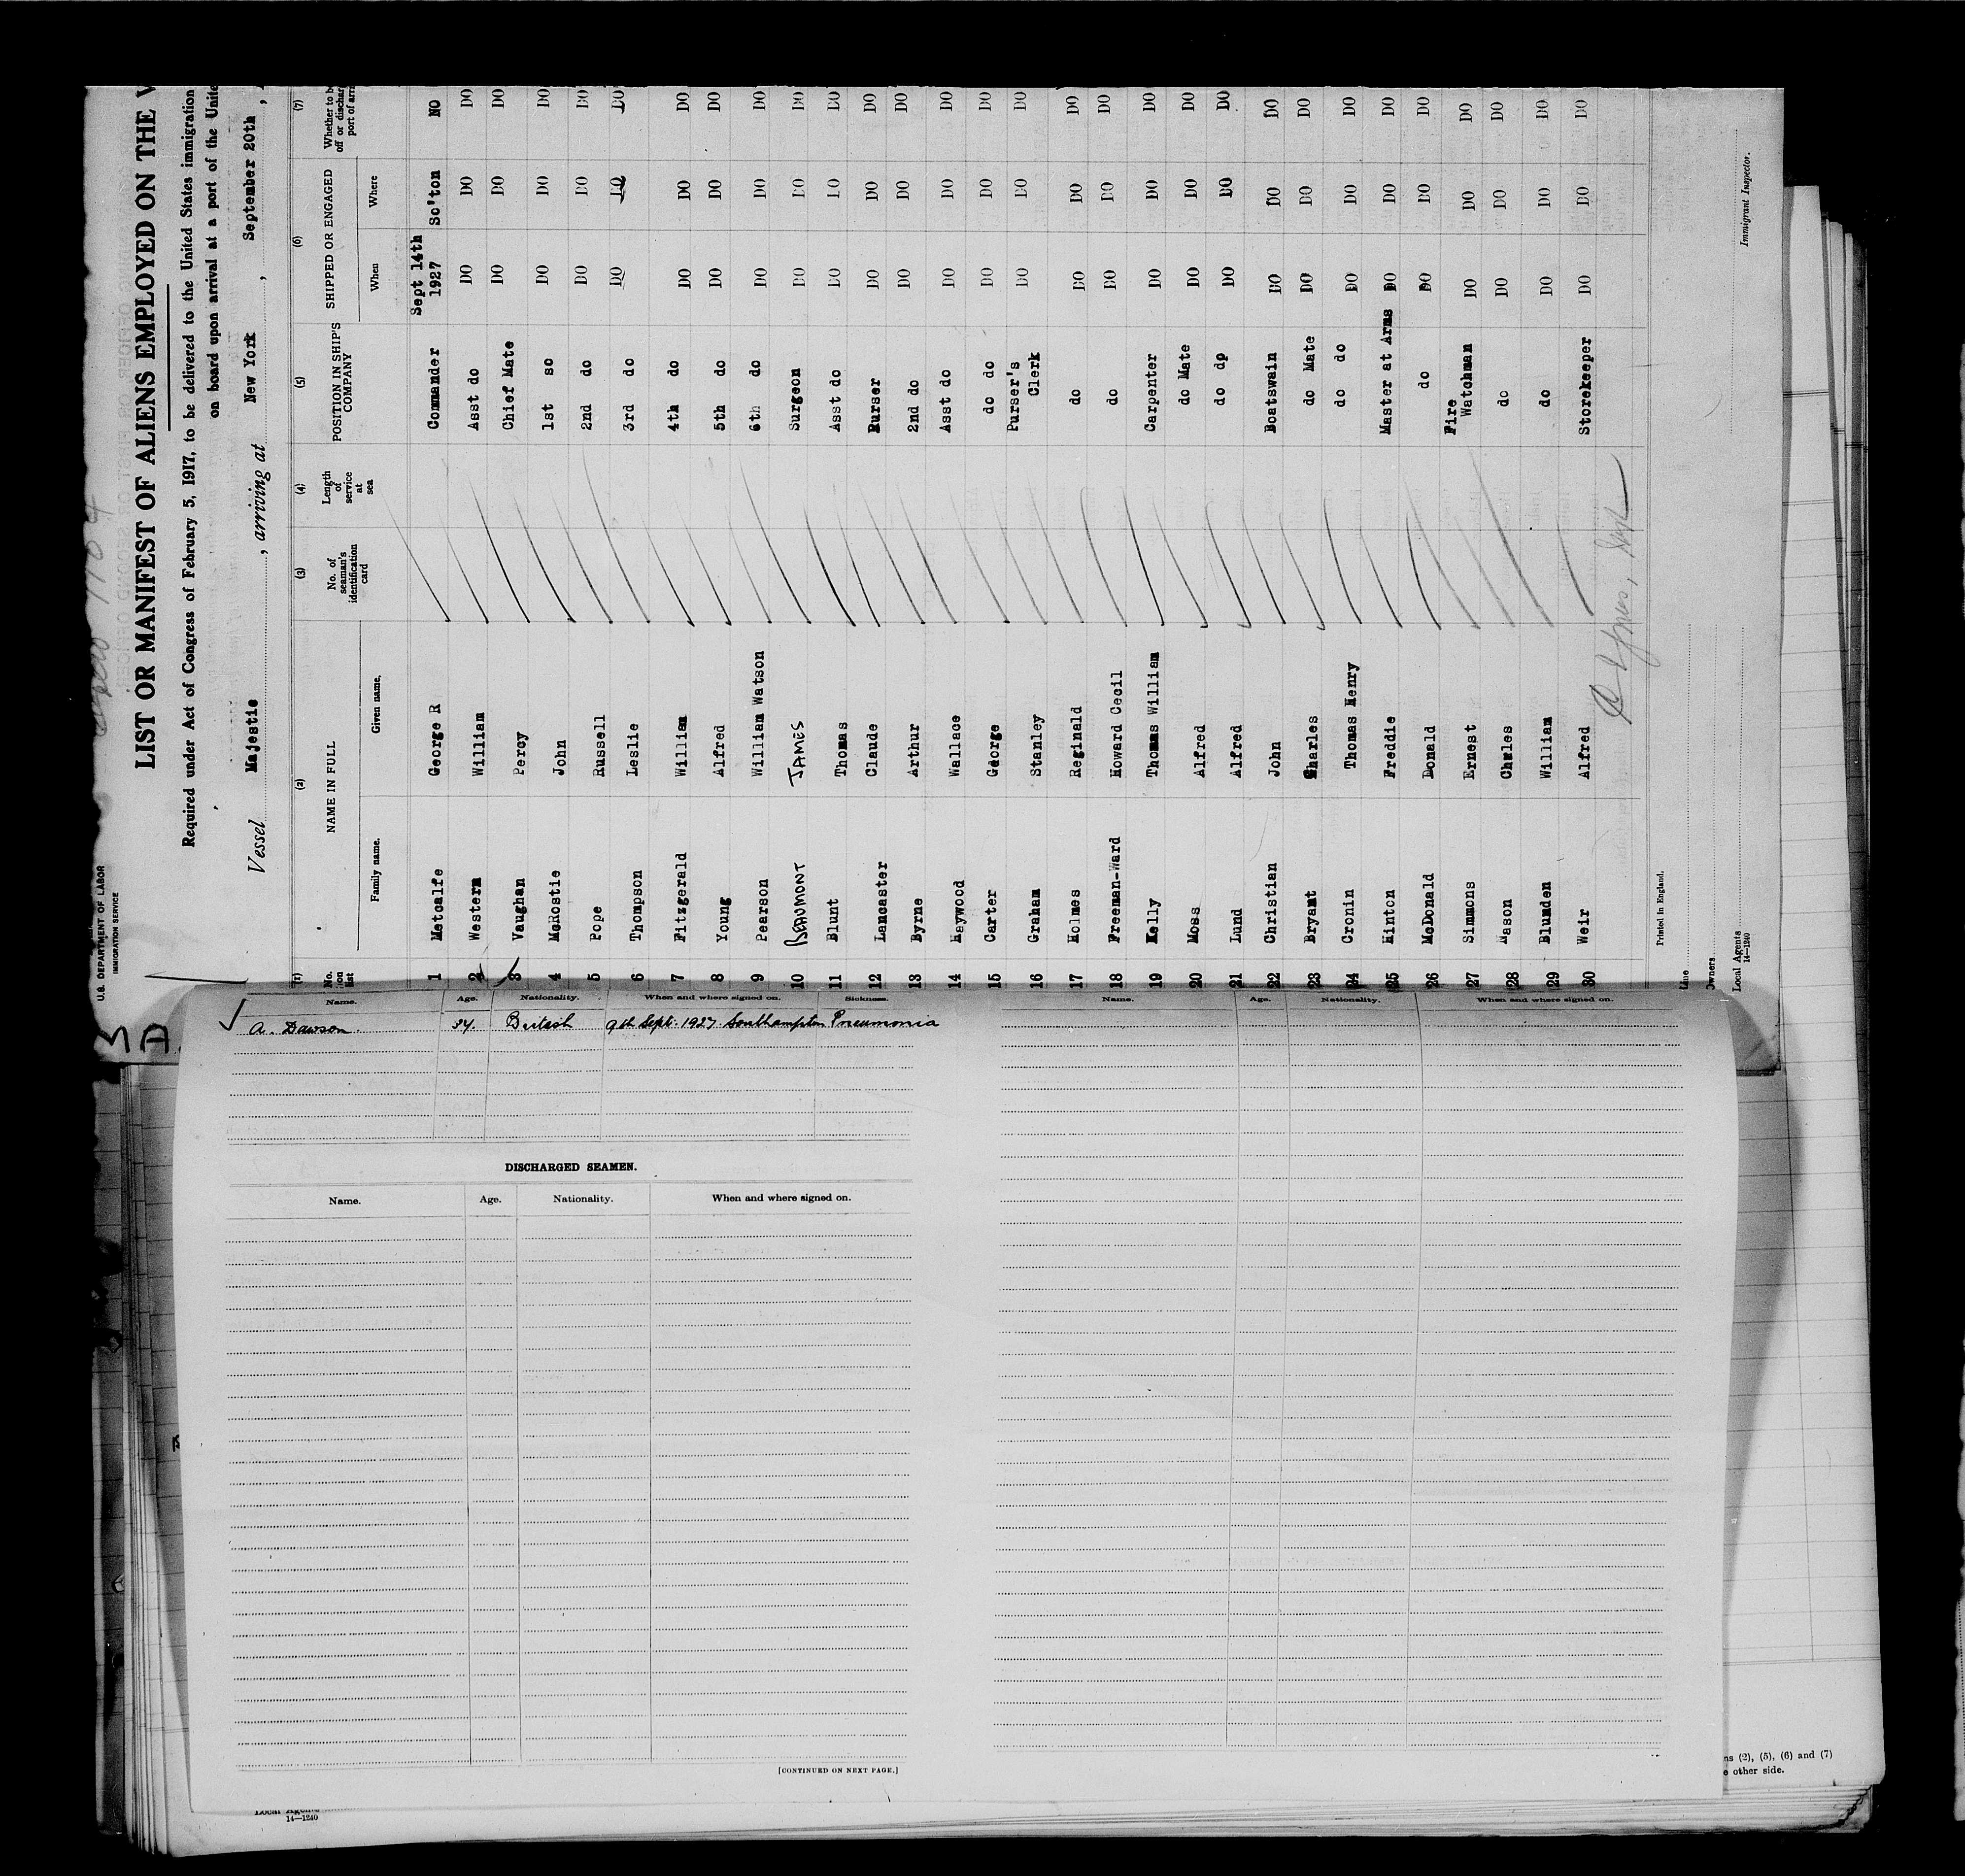 U.S. DEPARTMENT OF LABOR
IMMIGRATION SERVICE
LIST OR MANIFEST OF ALIENS EMPLOYED ON THE V
Required under Act of Congress of February 5, 1917, to be delivered to the United States immigration
on board upon arrival at a port of the Unite
Vessel Majestic, arriving at New York, September 20th,
(1) (2) (3) (4) (5) (6) (7)
No. on list NAME IN FULL No. of seaman's identification card Length of service at sea POSITION IN SHIP'S COMPANY SHIPPED OR ENGAGED Whether to be off or discharg port of arri
Family name. Given name. When Where
1 Metcalfe George R Commander Sept 14th 1927 So'ton NO
2 Western William Asst do DO DO DO
3 Vaughan Percy Chief Mate DO DO DO
4 McRostie John 1st so DO DO DO
5 Pope Russell 2nd do DO DO DO
6 Thompson Leslie 3rd do DO DO DO
7 Fitzgerald William 4th do DO DO DO
8 Young Alfred 5th do DO DO DO
9 Pearson William Watson 6th do DO DO DO
10 BEAUMONT JAMES Surgeon DO DO DO
11 Blunt Thomas Asst do DO DO DO
12 Lancaster Claude Purser DO DO DO
13 Byrne Arthur 2nd do DO DO DO
14 Haywood Wallace Asst do DO DO DO
15 Carter George do do DO DO DO
16 Graham Stanley Purser's Clerk DO DO DO
17 Holmes Reginald do DO DO DO
18 Freeman-Ward Howard Cecil do DO DO DO
19 Kelly Thomas William Carpenter DO DO DO
20 Moss Alfred do Mate DO DO DO
21 Lund Alfred do do DO DO DO
22 Christian John Boatswain DO DO DO
23 Bryant Charles do Mate DO DO DO
24 Cronin Thomas Henry do do DO DO DO
25 Hinton Freddie Master at Arms DO DO DO
26 McDonald Donald do DO DO DO
27 Simmons Ernest Fire Watchman DO DO DO
28 Mason Charles do DO DO DO
29 Blunden William do DO DO DO
30 Weir Alfred Storekeeper DO DO DO
Printed in England.
Line
Owners
Local Agents
14-1240
Immigrant Inspector.
MA.
Name. Age. Nationality. When and where signed on. Sickness. Name. Age. Nationality. When and where signed on.
A. Dawson. 34. British 9th Sept. 1927 Southampton Pneumonia
DISCHARGED SEAMEN.
Name. Age. Nationality. When and where signed on.
[CONTINUED ON NEXT PAGE.]
ns (2), (5), (6) and (7)
e other side.
Local Agents
14—1240